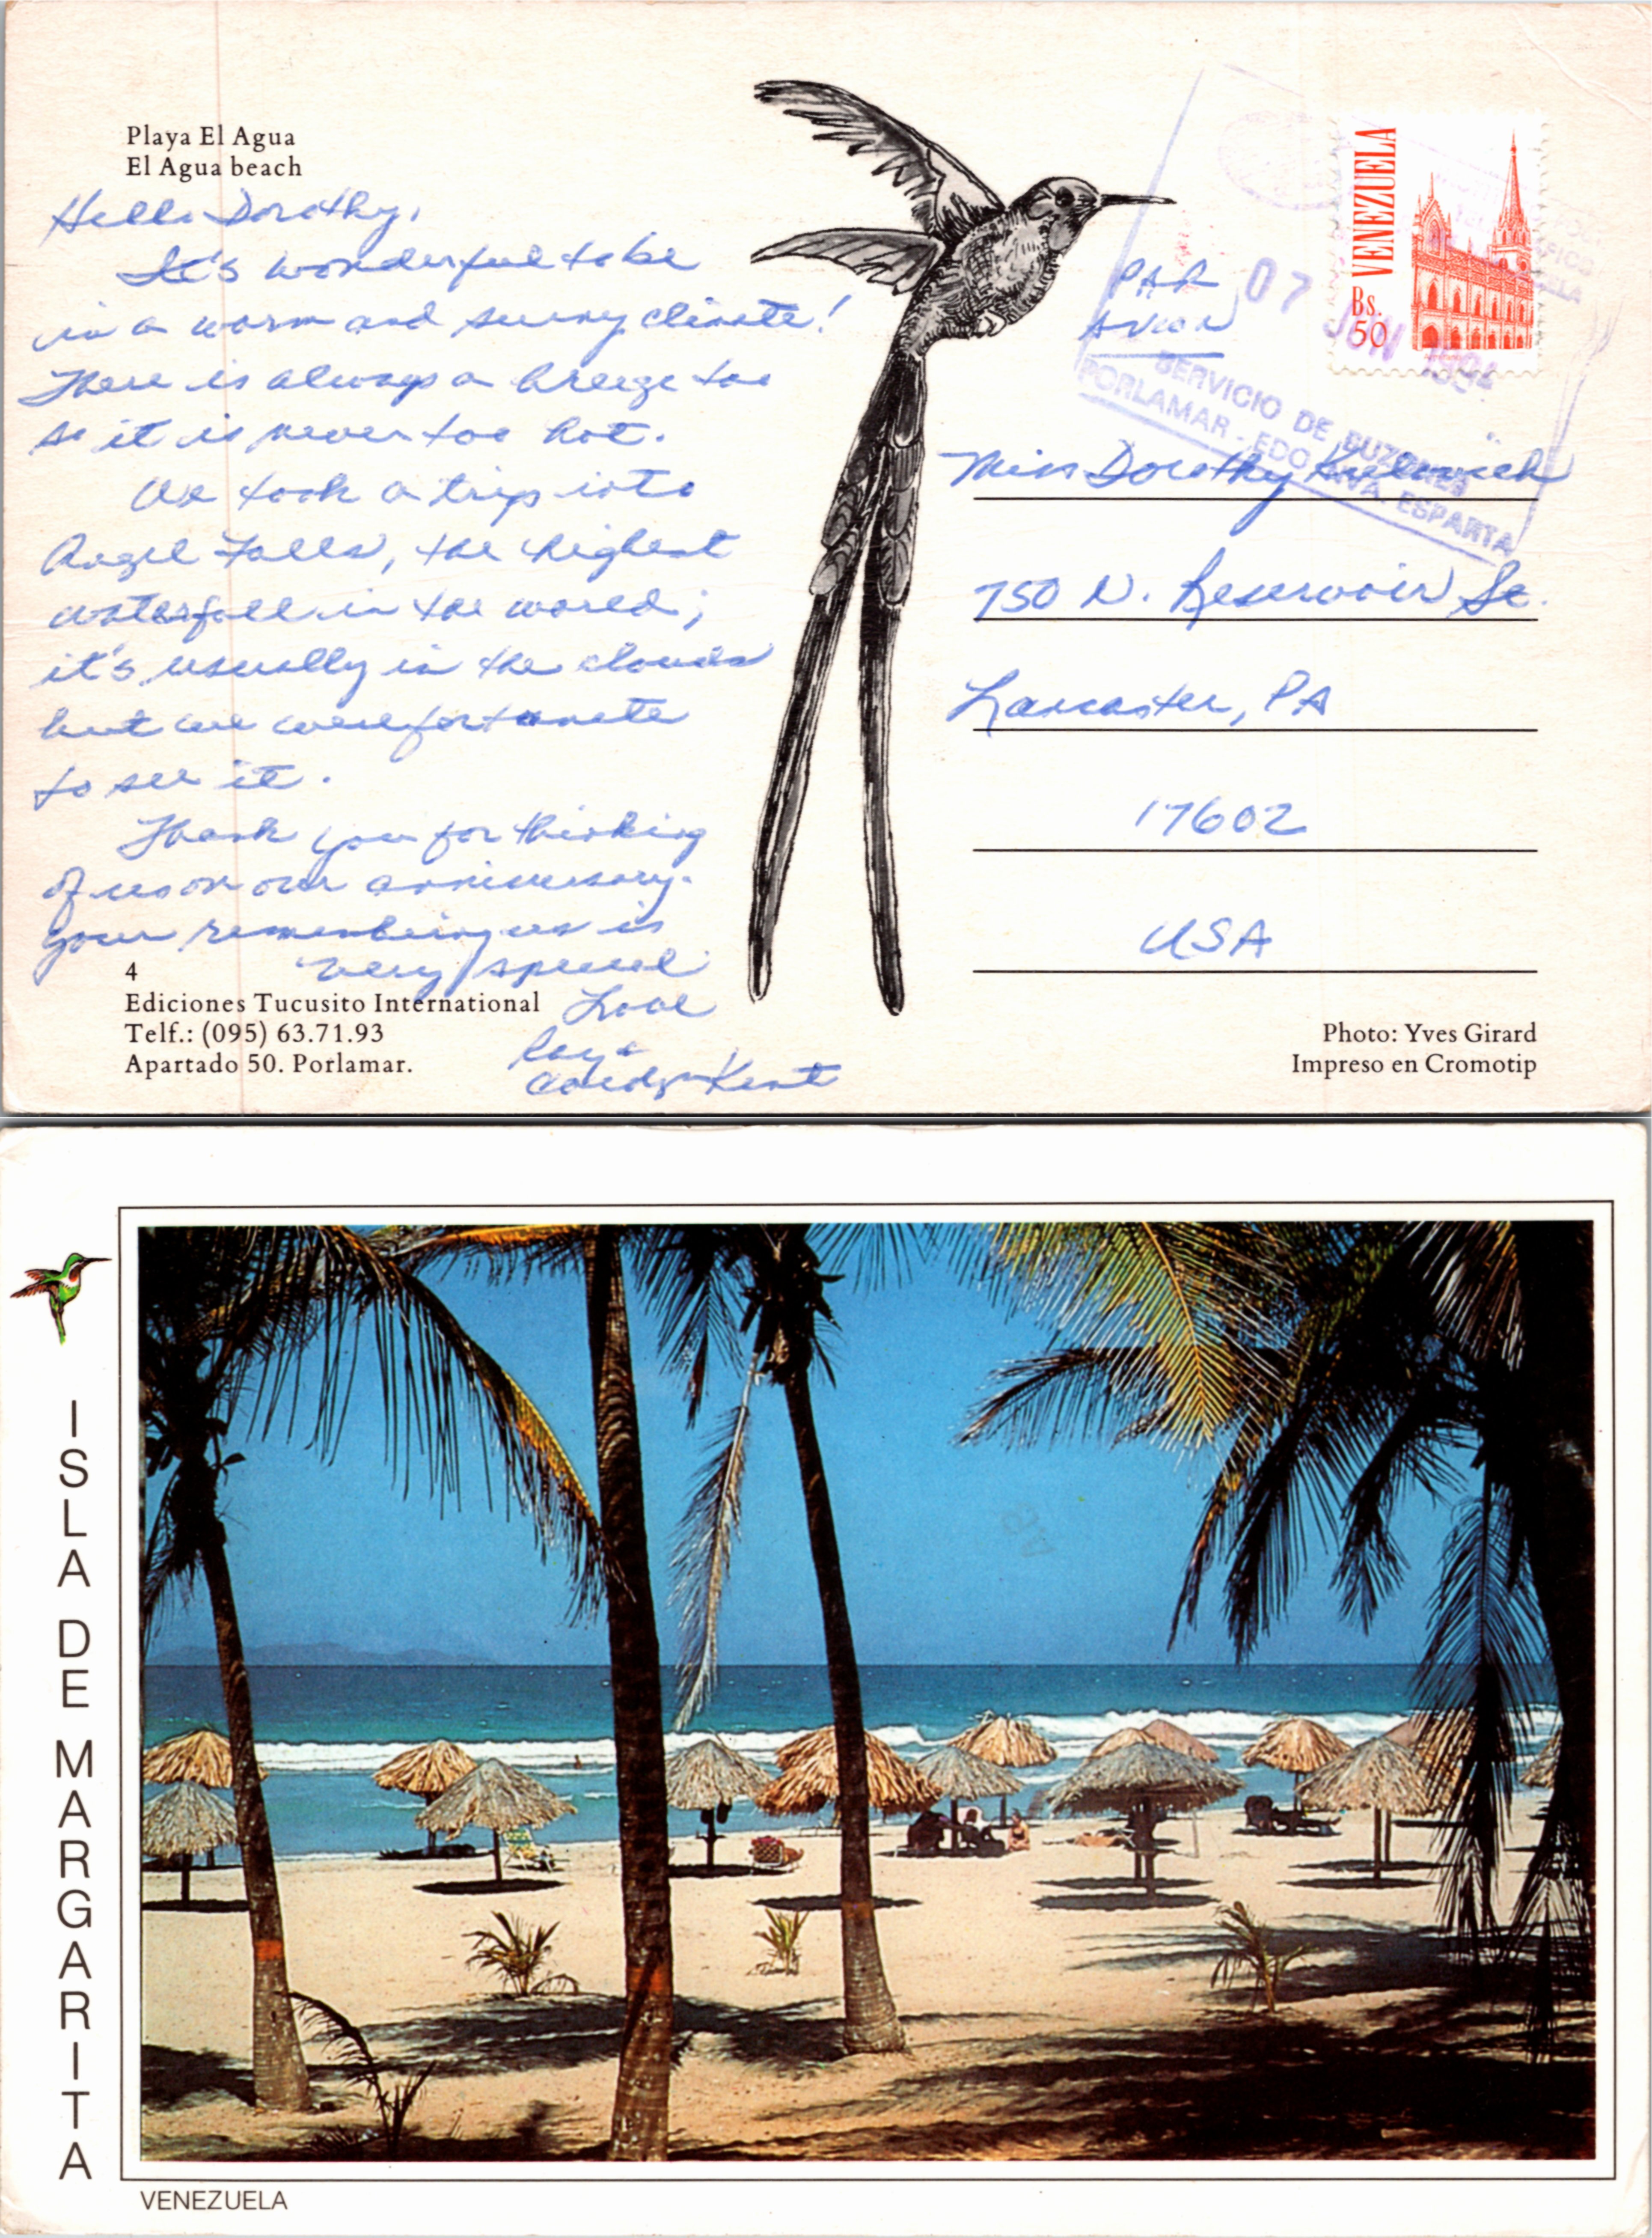 Playa El Agua
El Agua beach
Hello Dorothy,
It's wonderful to be
in a warm and sunny climate!
There is always a breeze too
so it is never too hot.
We took a trip into
Angel Falls, the highest
waterfall in the world;
it's usually in the clouds
but we were fortunate
to see it.
Thank you for thinking
of us on our anniversary.
Your remembering us is
very special
Love
Ray &
Kent
4
Ediciones Tucusito International
Telf.: (095) 63.71.93
Apartado 50. Porlamar.
PAR
AVION
VENEZUELA
Bs.
50
07 JUN
SERVICIO DE BUZONES
PORLAMAR - EDO. NVA. ESPARTA
Miss Dorothy
750 N. Reservoir St.
Lancaster, PA
17602
USA
Photo: Yves Girard
Impreso en Cromotip
ISLA DE MARGARITA
VENEZUELA